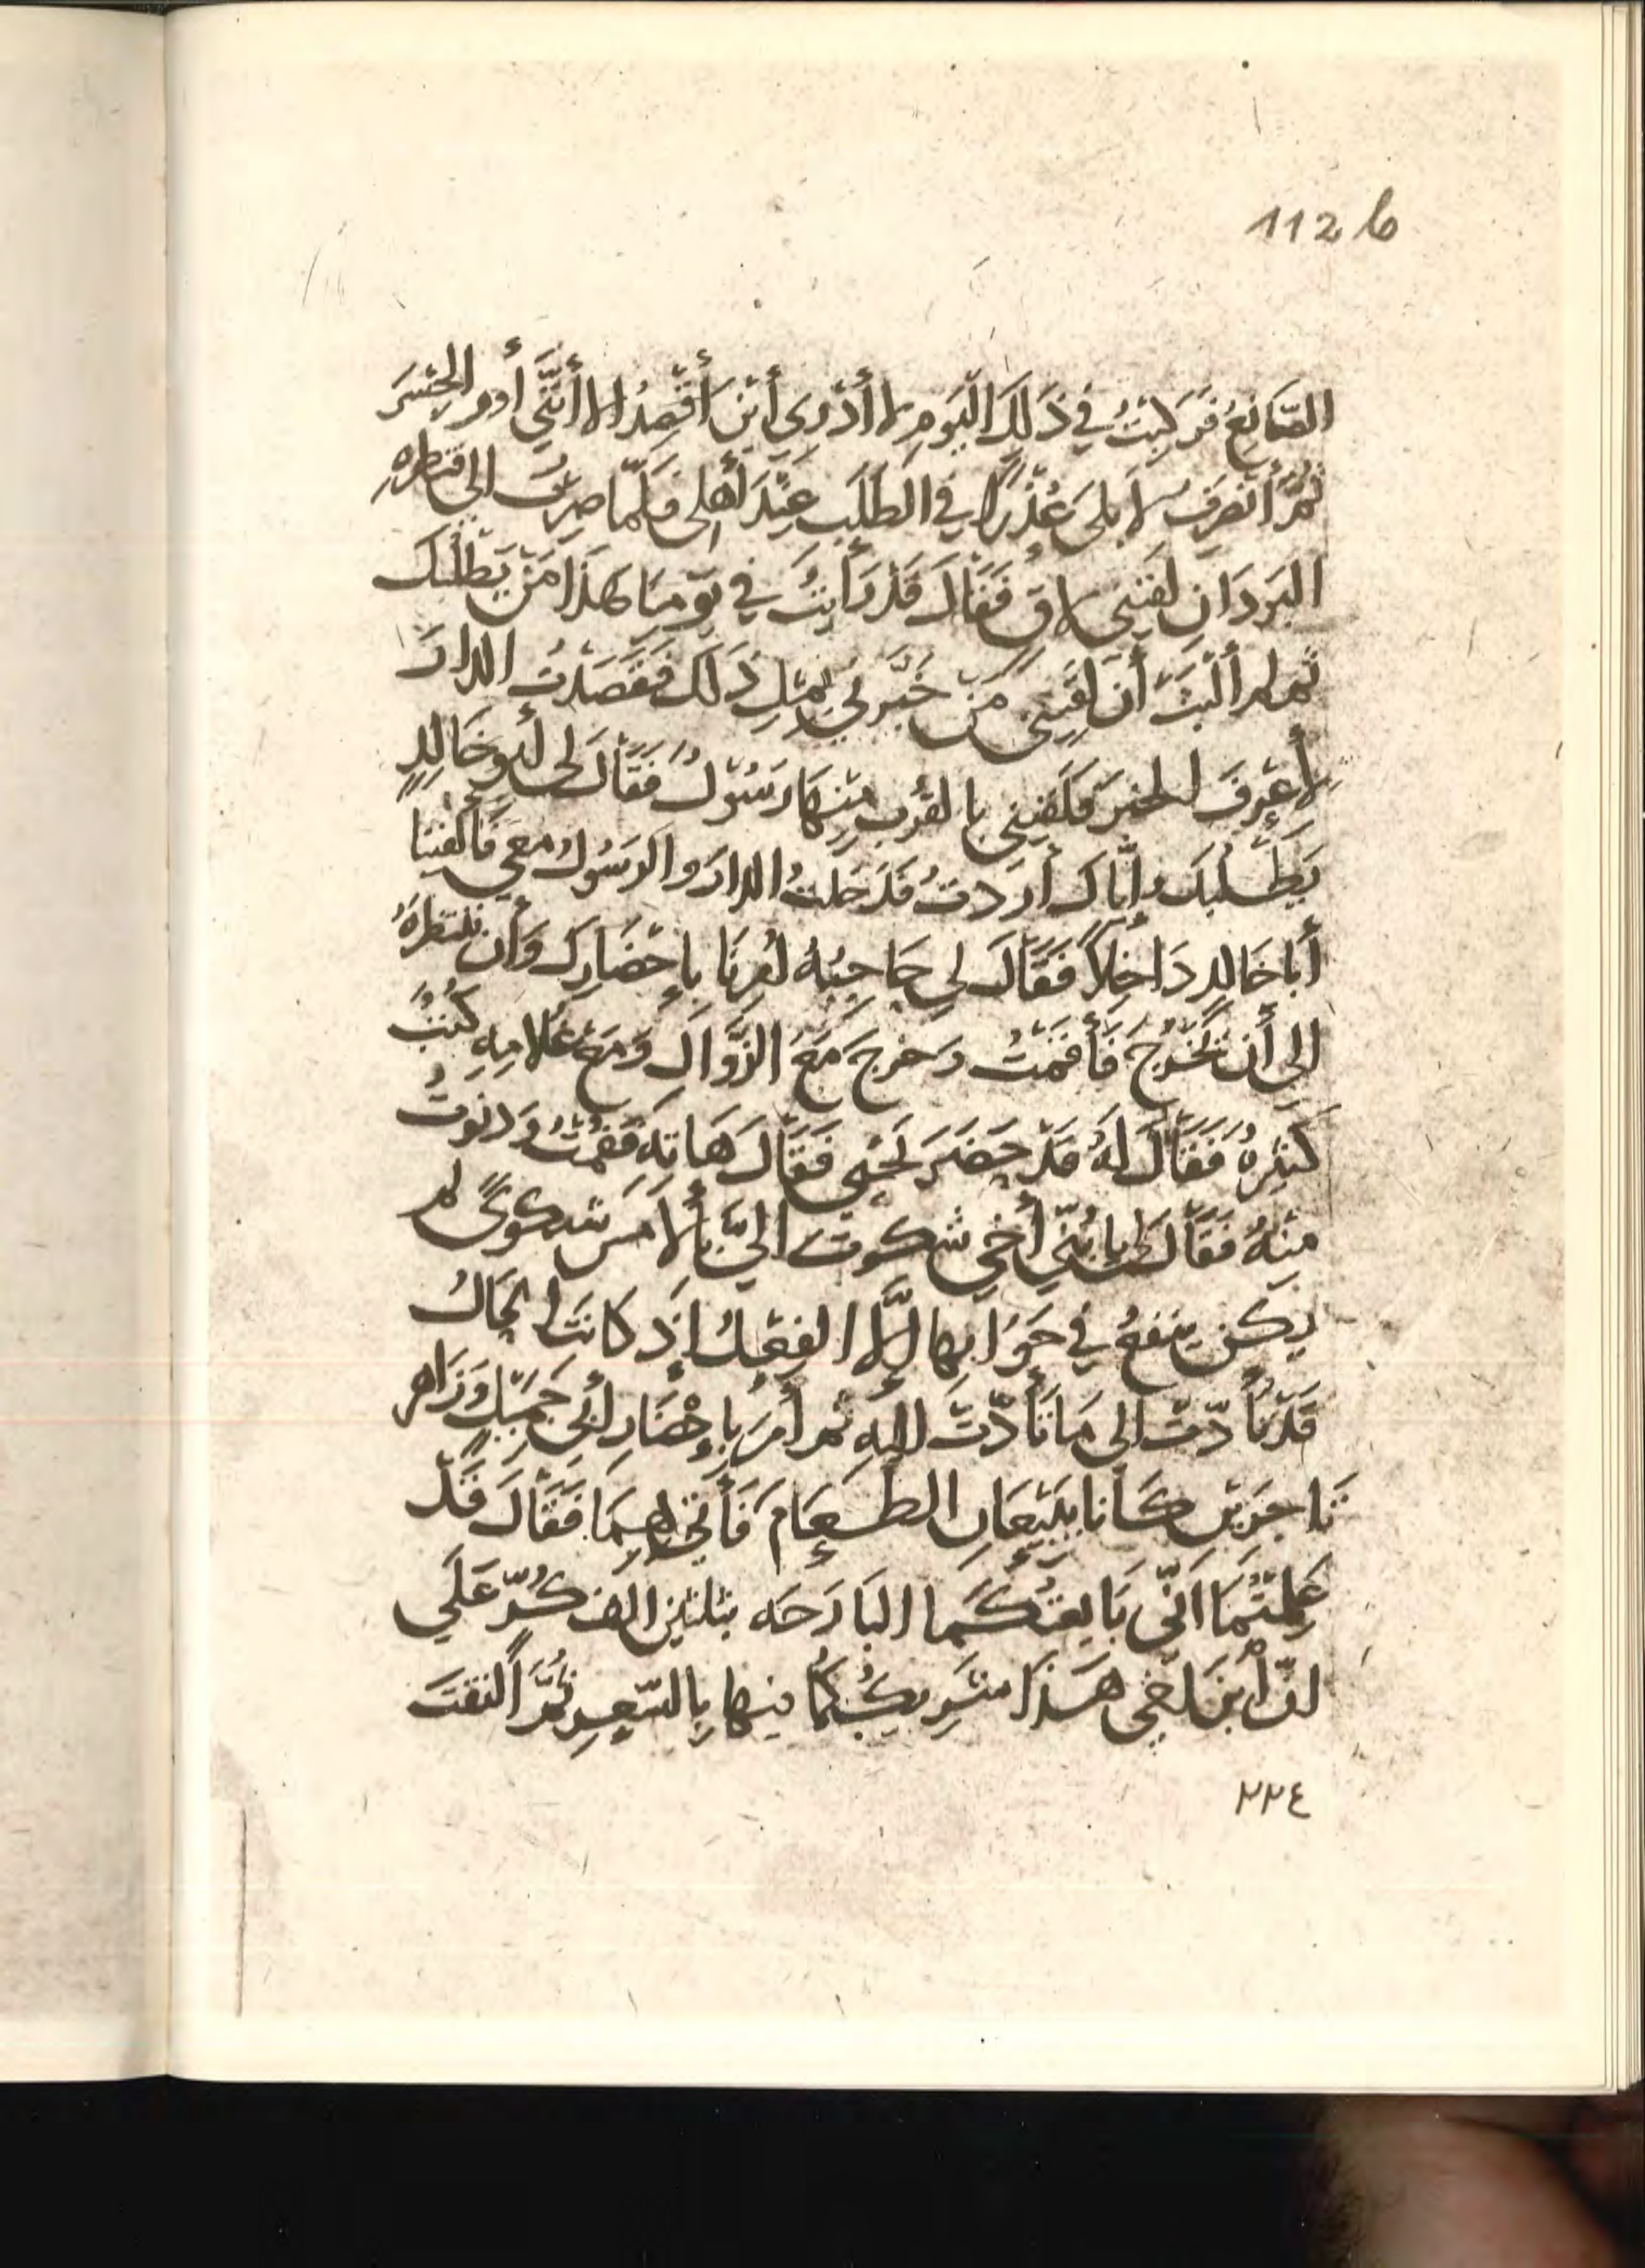 112 b
الصَّانِعُ فَرَكِبْتُ في ذَلِكَ اليَومِ لا أَدْرِي أيْنَ أَقْصِدُ إلا أنَّنِي أوم الجِسْرَ
ثُمَّ أنصَرِفُ لأبلَى عُذْرًا في الطَلَبِ عِنْدَ أهلى فلَمَّا صِرتُ الى قنطره
البَردَانِ لَقِيَنِي لاقٍ فَقَالَ قَدْ رَأيتُ في يَومِنَا هَذَا مَنْ يَطْلُبُكَ
ثم لم ألْبَثْ أن لَقِيَنِى مَنْ خَبَّرَنِي بِمِثلِ ذَلكَ فَقَصَدْتُ الدارَ
لأعرِفَ الخبرَ فلَقِيَنِي بالقُربِ مِنْهَا رَسُوْلٌ فَقَالَ لى أبو خَالِدٍ
يَطْلُبُكَ وإيَّاكَ أردتُ فدَخَلتُ الدارَ والرَسُولُ معي فَألفَينَا
أبا خَالِدٍ دَاخِلاً فَقَالَ لِي حَاجِبُهُ أُمِرنَا بإحْضَارِكَ وَأن ننتظرَهُ
الى أن يَخْرُجَ فَأقمْتُ وَخرجَ مَعَ الزَّوَالِ وَمَعَ غُلامِهِ كتُبٌ
كَثِيرهٌ فَقَالَ لَهُ قَدْ حَضَرَ يَحْيى فَقَالَ هَاتِهِ فَقمْتُ وَدَنَوتُ
مِنْهُ فَقَالَ لى يا بُنَيّ أخي شكوتَ إليَّ بألامس شكوىً لم
يكن ينفعُ في جَوَابها إلَّا الفِعْلُ إذ كانَت الحَالُ
قَدْ تأدّت الى مَا تَأدّتْ إليهِ ثم أمرَ بإحْضَارِ أبي حَمِيلٍ وَزَاهر
تَاجِرَينِ كَانا يَبِيْعَانِ الطَعَامَ فَأتي بهِمَا فَقَالَ قَدْ
عَلِمتُمَا أنّى بَايعتُكُمَا البَارَحَه بثلثين الف كُرّ عَلَي
انّ أبنَ أخى هَذَا شَرِيكُكُمَا فيها بِالسّعرِ ثُمَّ ألتفتَ
٢٢٤